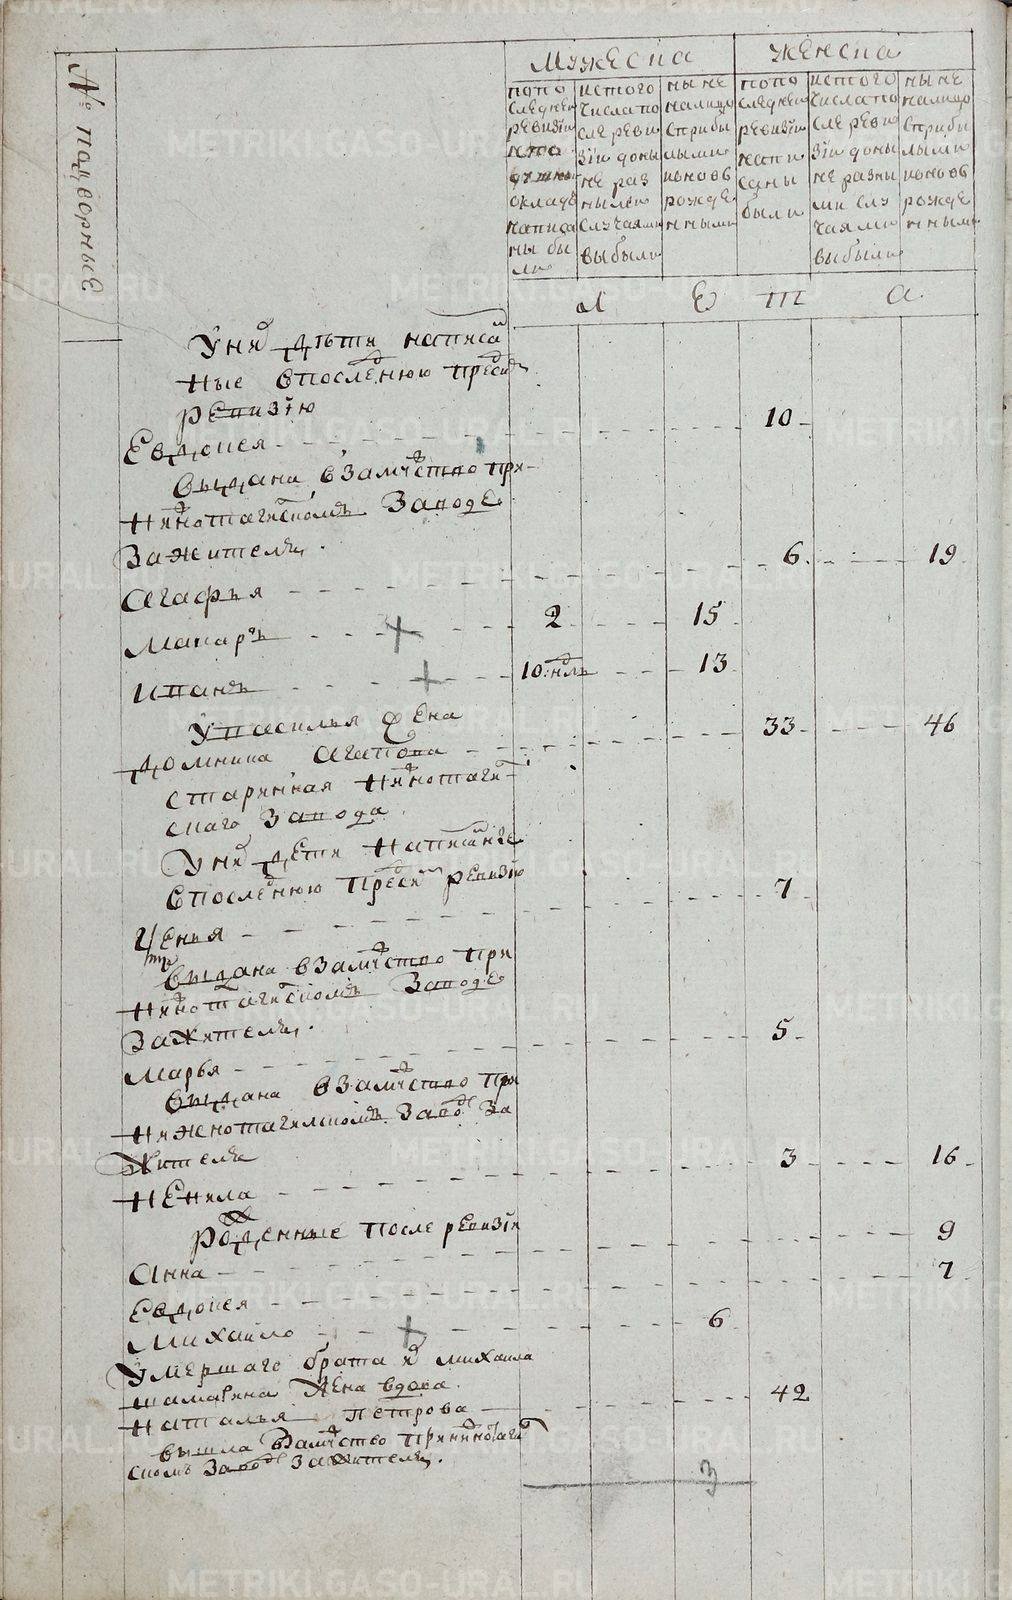 № подворные
Мужеска
женска
попо
следней
ревизiи
окладѣ
написа
ны бы
ли
истого
числа по
сле реви
зiи доны
не раз
ными
случаями
выбыли
ныне
налицо
сприбы
лыми
иновь
рожде
нными
попо
следней
ревизiи
напи
саны
были
истого
числа по
сле реви
зiи доны
не разны
ми слу
чаями
выбыли
ныне
налицо
сприбы
лыми
иновь
рожде
нными
л е т а
У них дѣти написан
ные впоследнюю пред сим
ревизiю
Евдокея 10
выдана взамужество при
Нижнотагилском Заводе
За жителя.
Агафья 6 19
Макаръ 2 15
Иванъ 10 ндль 13
У василья жена
домника агапова 33 46
старинная нижнотагил
скаго завода
У них дети написанные
впоследнюю пред сим ревизiю
Ксенья 7
выдана взамужество при
Нижнотагилском Заводе
За жителя.
Марья 5
выдана взамужество при
нижнотагилском заводе за
жителя
Ненила 3 16
рожденные после ревизiи
Анна 9
Евдокея 7
Михайло 6
Умершаго брата их михаила
жена вдова
Наталья петрова 42
вышла взамужство при нижнотагил
ском заводе за жителя.
3
METRIKI.GASO-URAL.RU